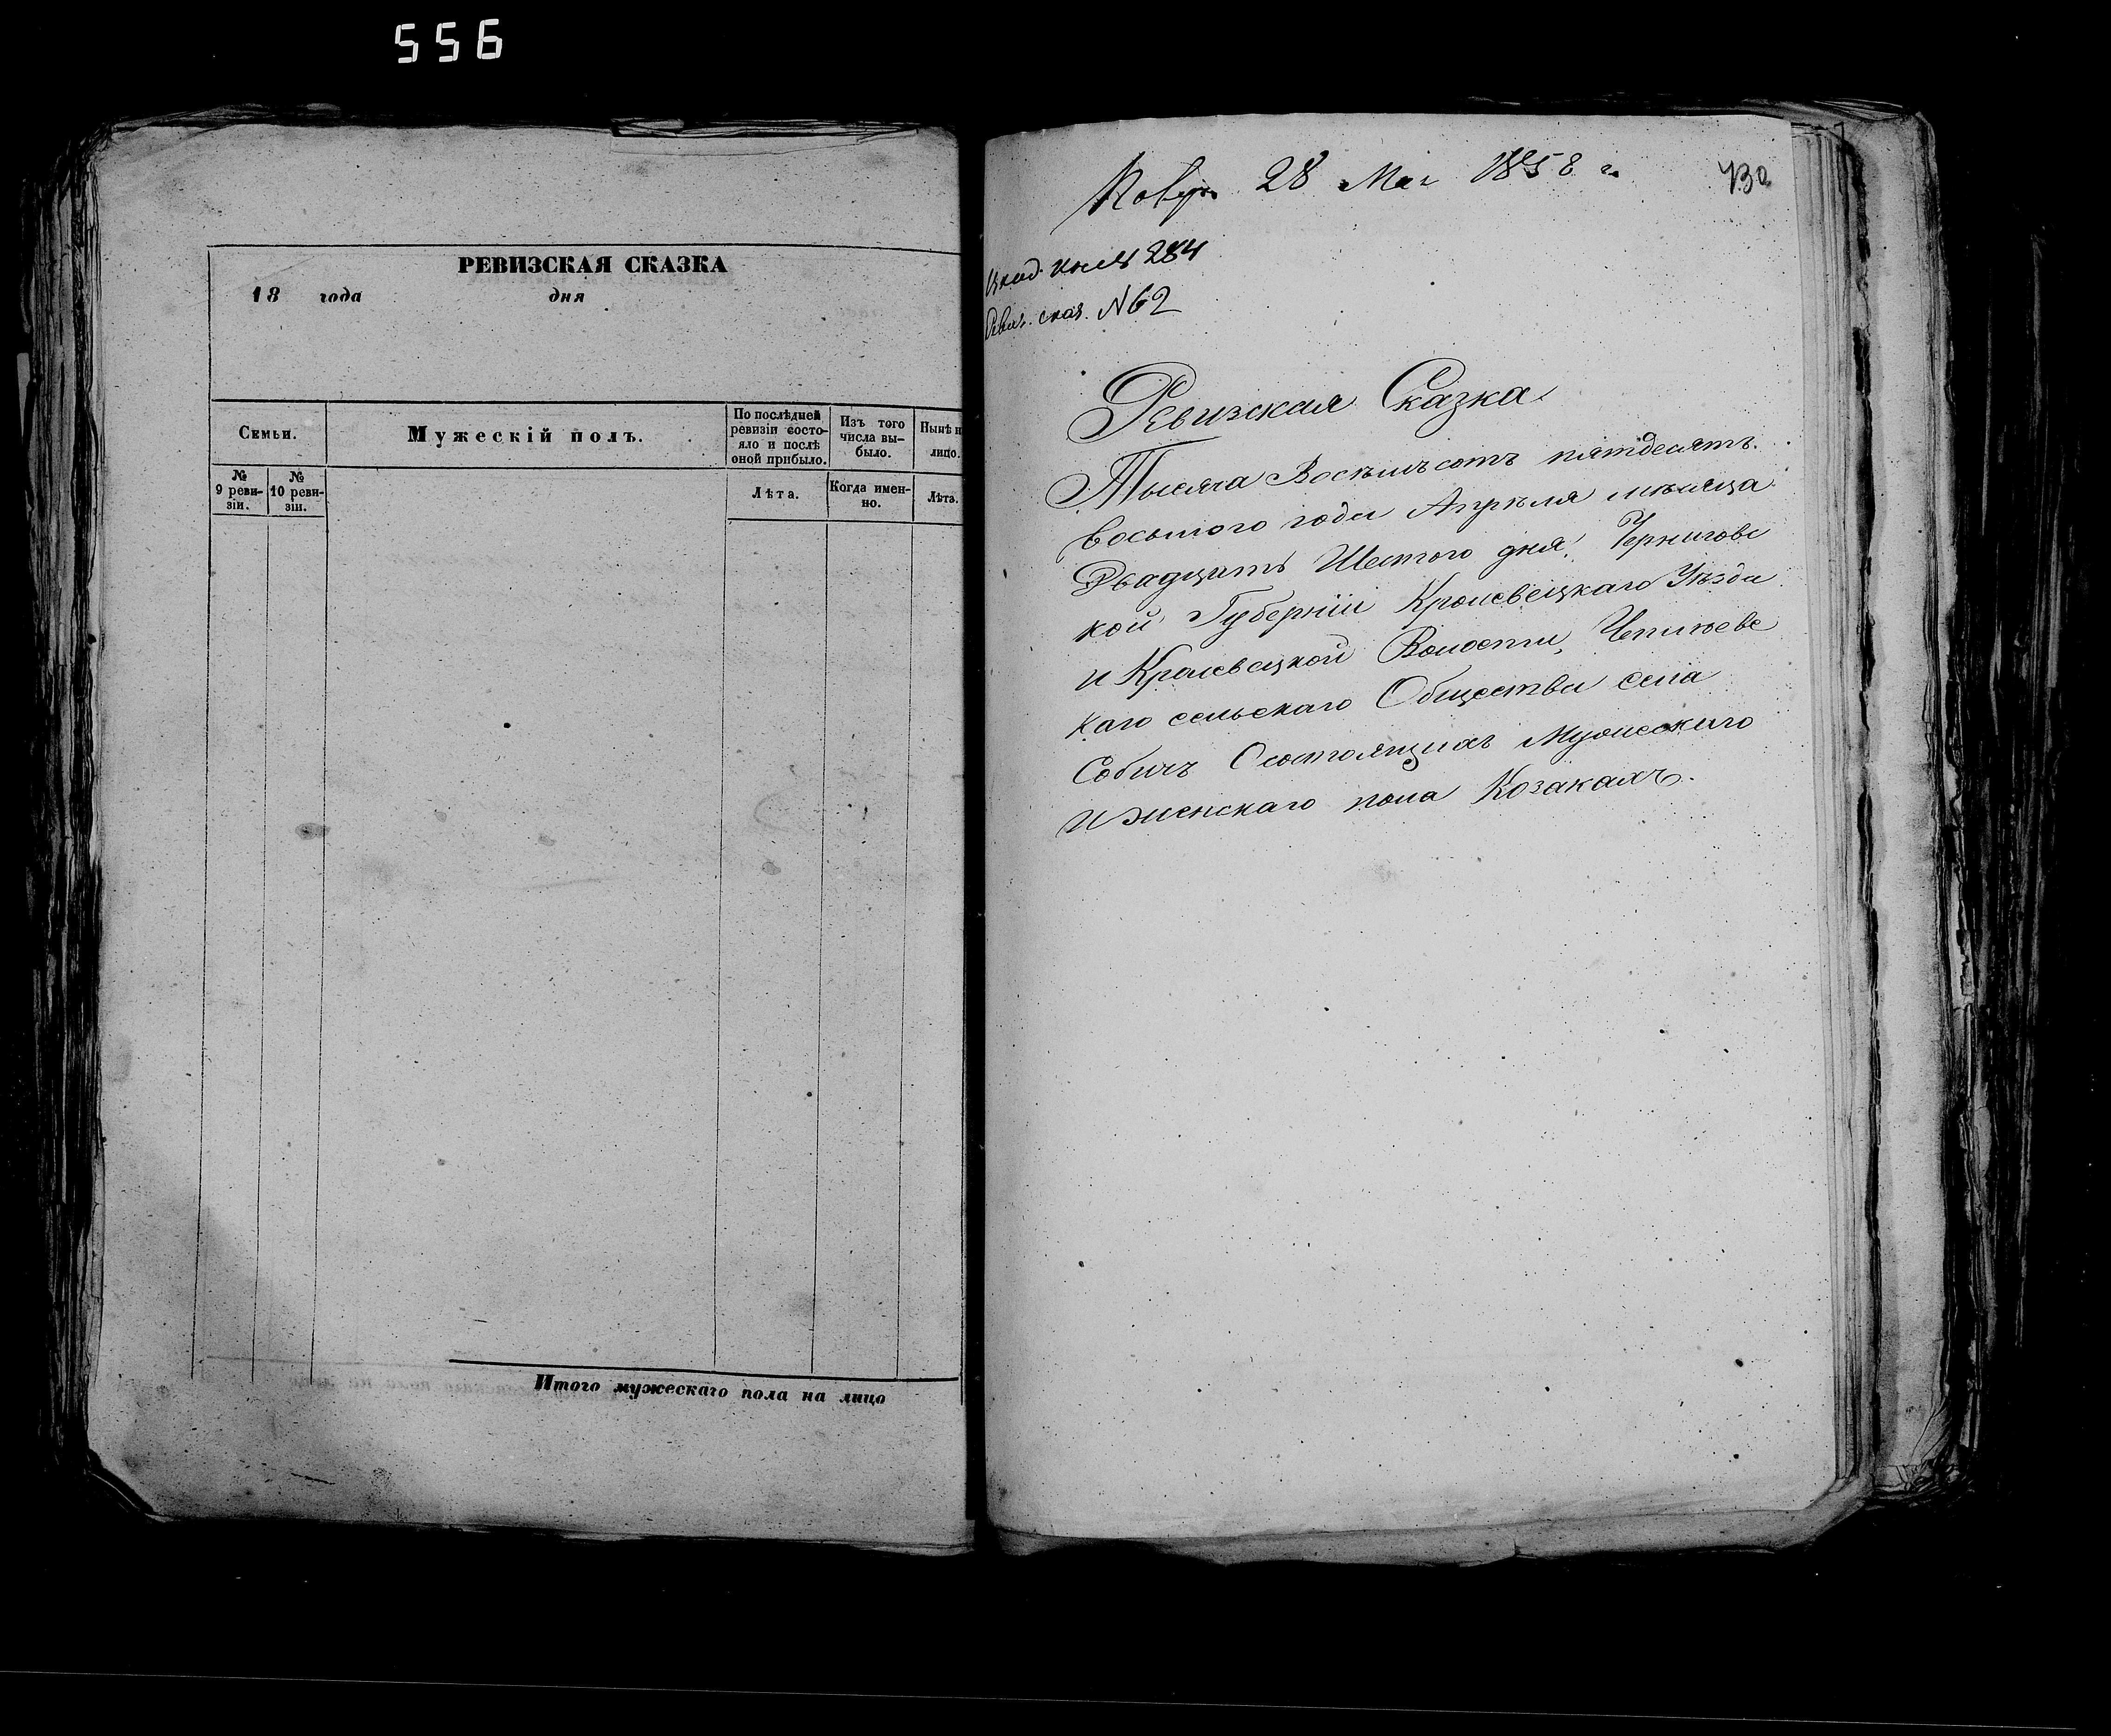 556
РЕВИЗСКАЯ СКАЗКА
18 года дня
Семьи.
Мужескій полъ.
По послѣдней ревизіи состояло и послѣ оной прибыло.
Изъ того числа выбыло.
Нынѣ н
лицо.
№ 9 ревизіи.
№ 10 ревизіи.
Лѣта.
Когда именно.
Лѣта.
Итого мужескаго пола на лицо
28 Мая 1858 г.
430
284
Ревиз. сказ. N 62
Ревизская Сказка
Тысяча Восѣмъсотъ пятдесятъ
восьмого года Апрѣля мѣсяца
Двадцать Шестого дня. Черниговс
кой Губерніи Кролевецкаго Уѣзда
и Кролевецкой Волости,
каго сельскаго Общества села
Собичъ О состоящихъ Мужескаго
и женскаго пола Козакахъ.